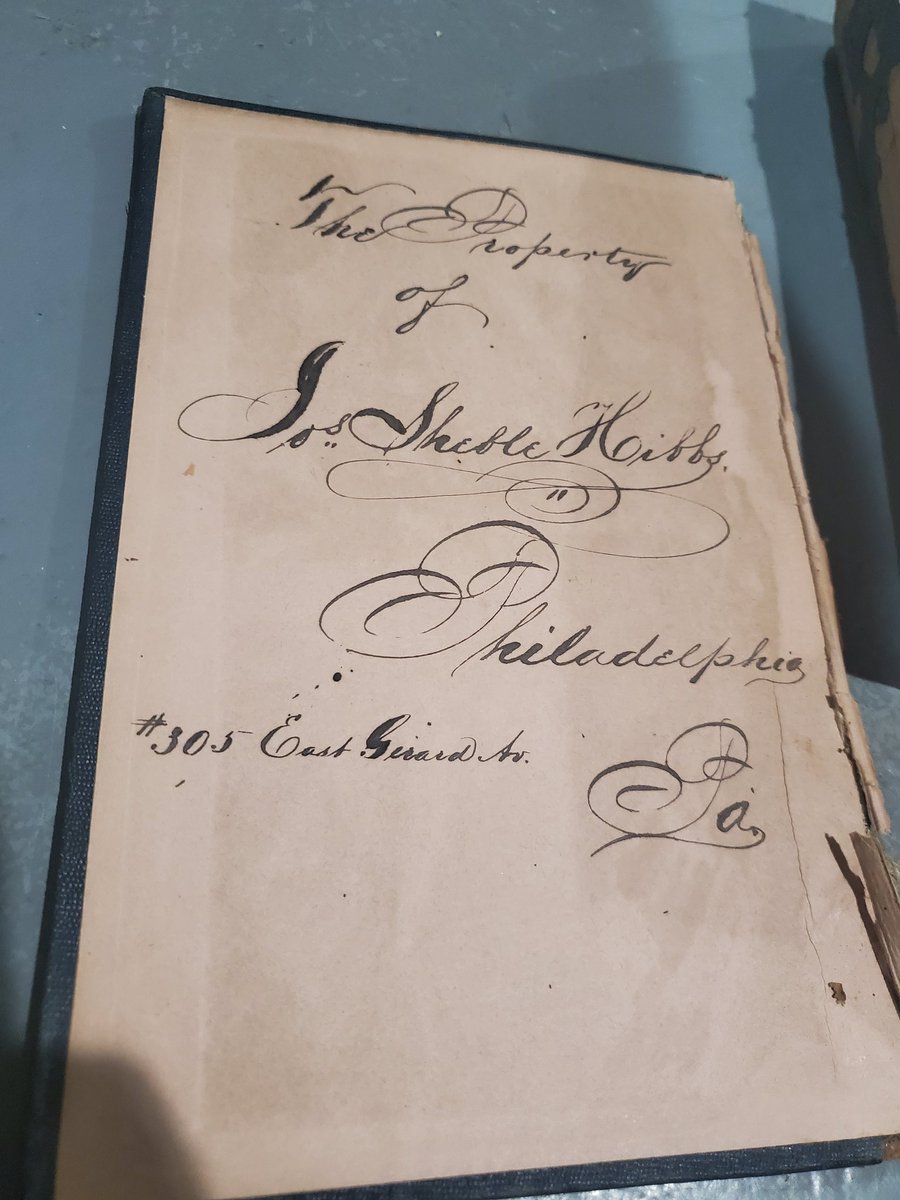 The Property
of
Jos. Sheble Hibbs.
Philadelphia
#305 East Girard Av.
Pa.